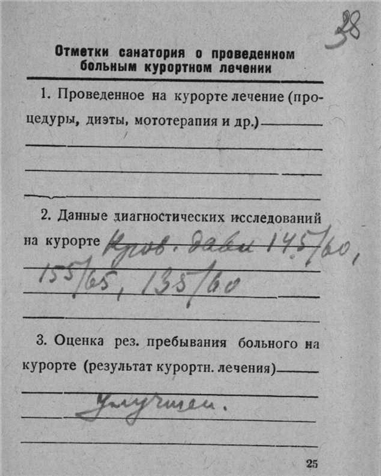 38
Отметки санатория о проведенном
больным курортном лечении
1. Проведенное на курорте лечение (про-
цедуры, диэты, мототерапия и др.)
2. Данные диагностических исследований
на курорте Кров. давл 145/60,
155/65, 135/60
3. Оценка рез. пребывания больного на
курорте (результат курортн. лечения)
улучшен.
25